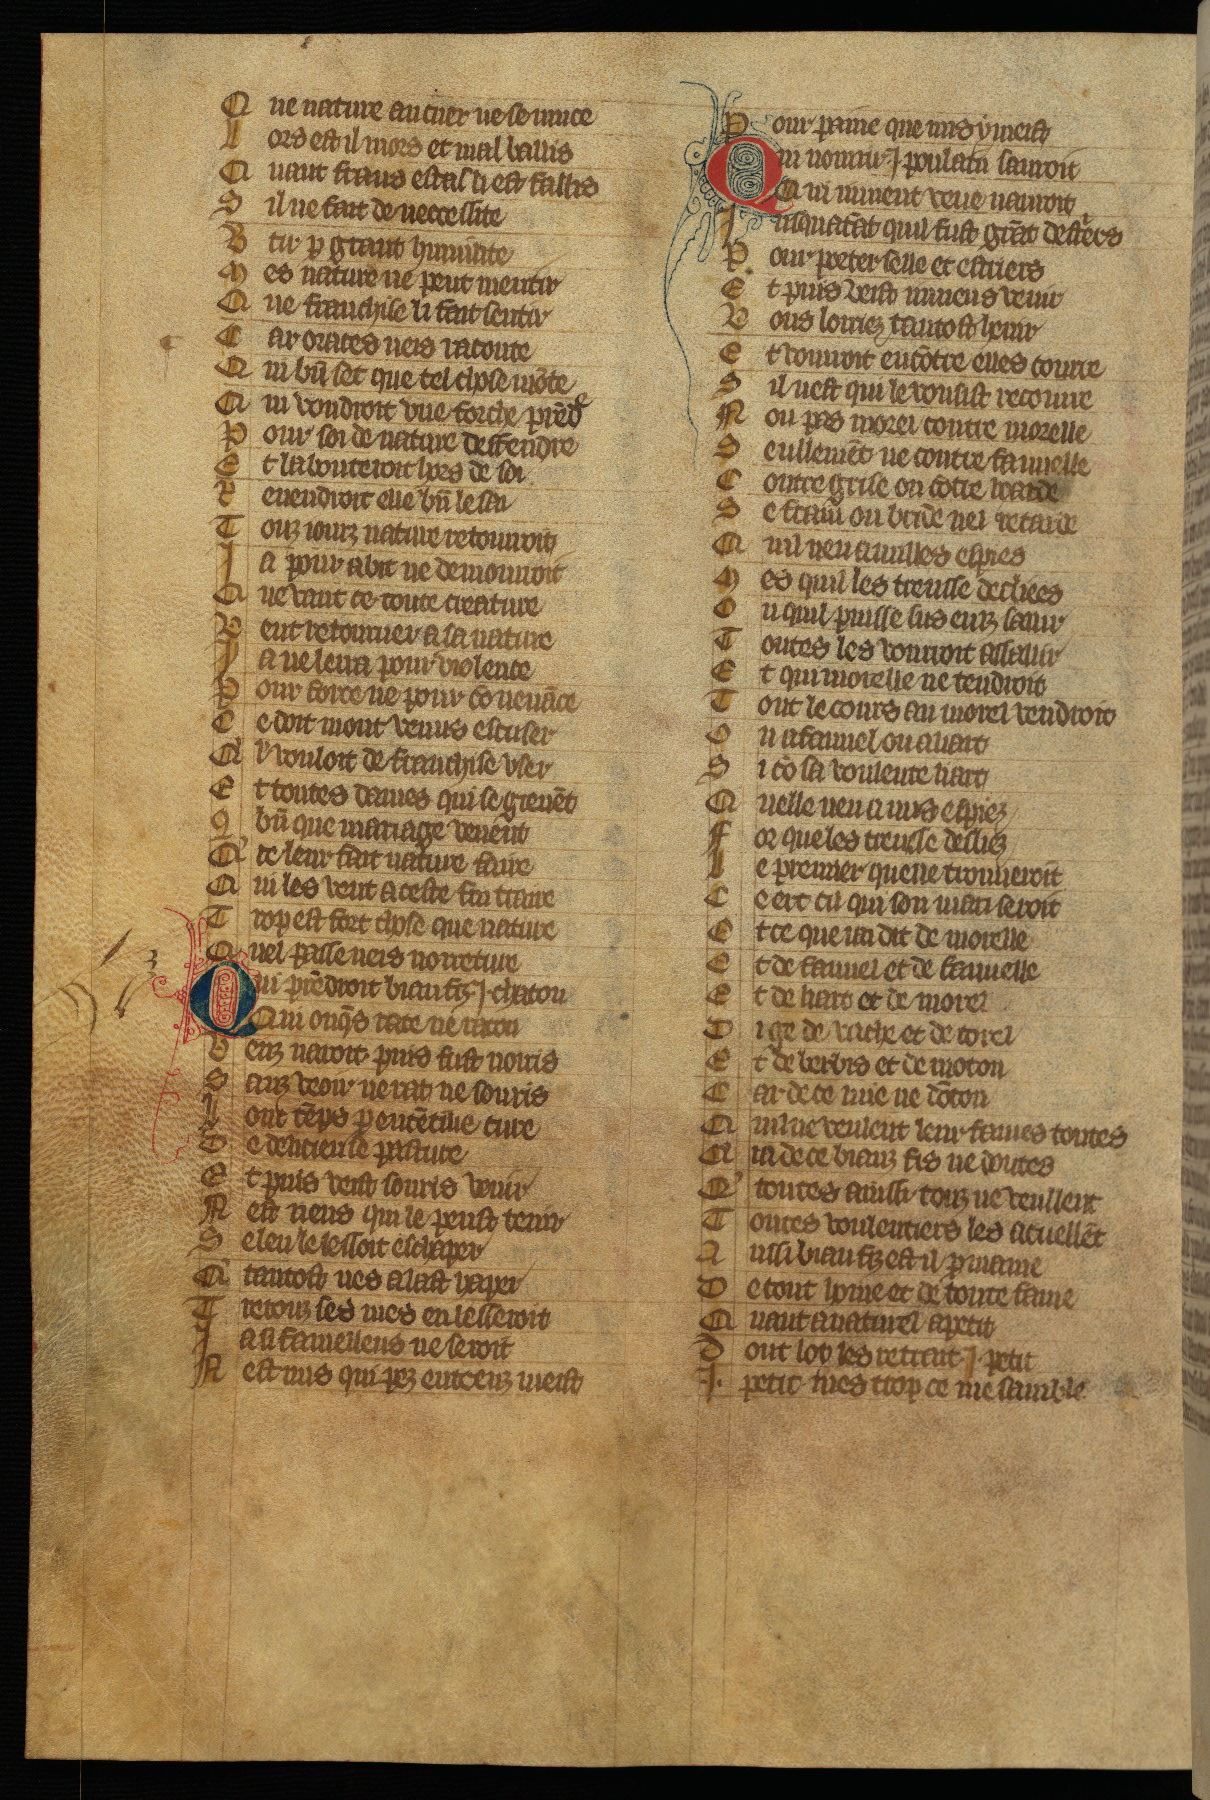 Q ue nature au cuer ne se muce
L ors est il mors et mal baillis
Q uant frans estas li est faillis
S il ne fait de neccessite
V tu p grant humilite
M es nature ne peut mentir
Q ue franchise li fait sentir
C ar oraces neis raconte
Q ui bn̄ set que tel chose mōte
Q ui voudroit vne forche prēdre
P our soi de nature deffendre
E t la bouteroit hors de soi
R euendroit elle bn̄ le sai
T ouz iourz nature retourroit
J a pour abit ne demourroit
Q ue vaut ce toute creature
V eut retourner a sa nature
J a ne lerra pour violence
P our force ne pour cōuenāce
C e doit mout venus escuser
Q' l' vouloit de franchise vser
E t toutes dames qui se grieuēt
9 bn̄ que mariage venent
Q' ce leur fait nature faire
Q ui les veut a ceste fin traire
T rop est fort chose que nature
Q uel passe neis norreture
Q ui prēdroit biau fiz .j. chaton
Q ui onq̄s rate ne raton
V euz nauroit puis fust nouris
S anz veoir ne rat ne souris
L onc tēps p ententiue cure
D e delicieuse pasture
E t puis veist souris venir
N est riens qui le peust tenir
S e len le lessoit eschaper
Q' tantost nes alast haper
T retouz ses mes en lesseroit
J a si famelleus ne seroit
N est nus qui pez entreuz meist
P our paine que nus y meist
Q ui nourrir .j. poulain sauroit
Q ui iument veue nauroit
J usquatāt quil fust grāt destr̄ers
P our porter selle et estriers
E t puis veist iumens venir
V ous lorriez tantost henir
E t vourroit encōtre elles courre
S il nest qui le vousist recourre
N on pas morel contre morelle
S eullemēt ne contre fauuelle
C ontre grise ou cōtre liarde
S e frain ou bride nel retarde
Q uil nen a nulles espiees
M es quil les treusse deliees
O u quil puisse sus eulz saillir
T outes les vourroit assaillir
E t qui morelle ne tendroit
T out le cours au morel vendroit
O u a fauuel ou a liart
S i cō sa voulente liart
Q uelle nen a nus espiez
F or que les treusse desliez
L e premier quelle trouueroit
C e ert cil qui son mari seroit
E t ce que iai dit de morelle
E t de fauuel et de fauuelle
E t de liart et de morel
D i ge de vache et de torel
E t de berbis et de moton
C ar de ce mie ne doton
Q uil ne veulent leur fames toutes
N ia de ce biauz fis ne doutes
Q' toutes ainssi touz ne veullent
T outes voulentiers les acuellēt
A ussi biau fiz est il p mame
D e tout home et de toute fame
Q uant a naturel apetit
D ont loy les retrait .j. petit
J. petit mes trop ce me samble